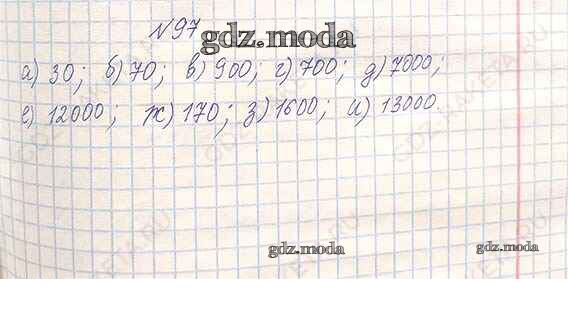 №97
gdz.moda
а) 30; б) 70; в) 900; г) 700; д) 7000;
е) 12000; ж) 170; з) 1600; и) 13000.
gdz.moda
gdz.moda